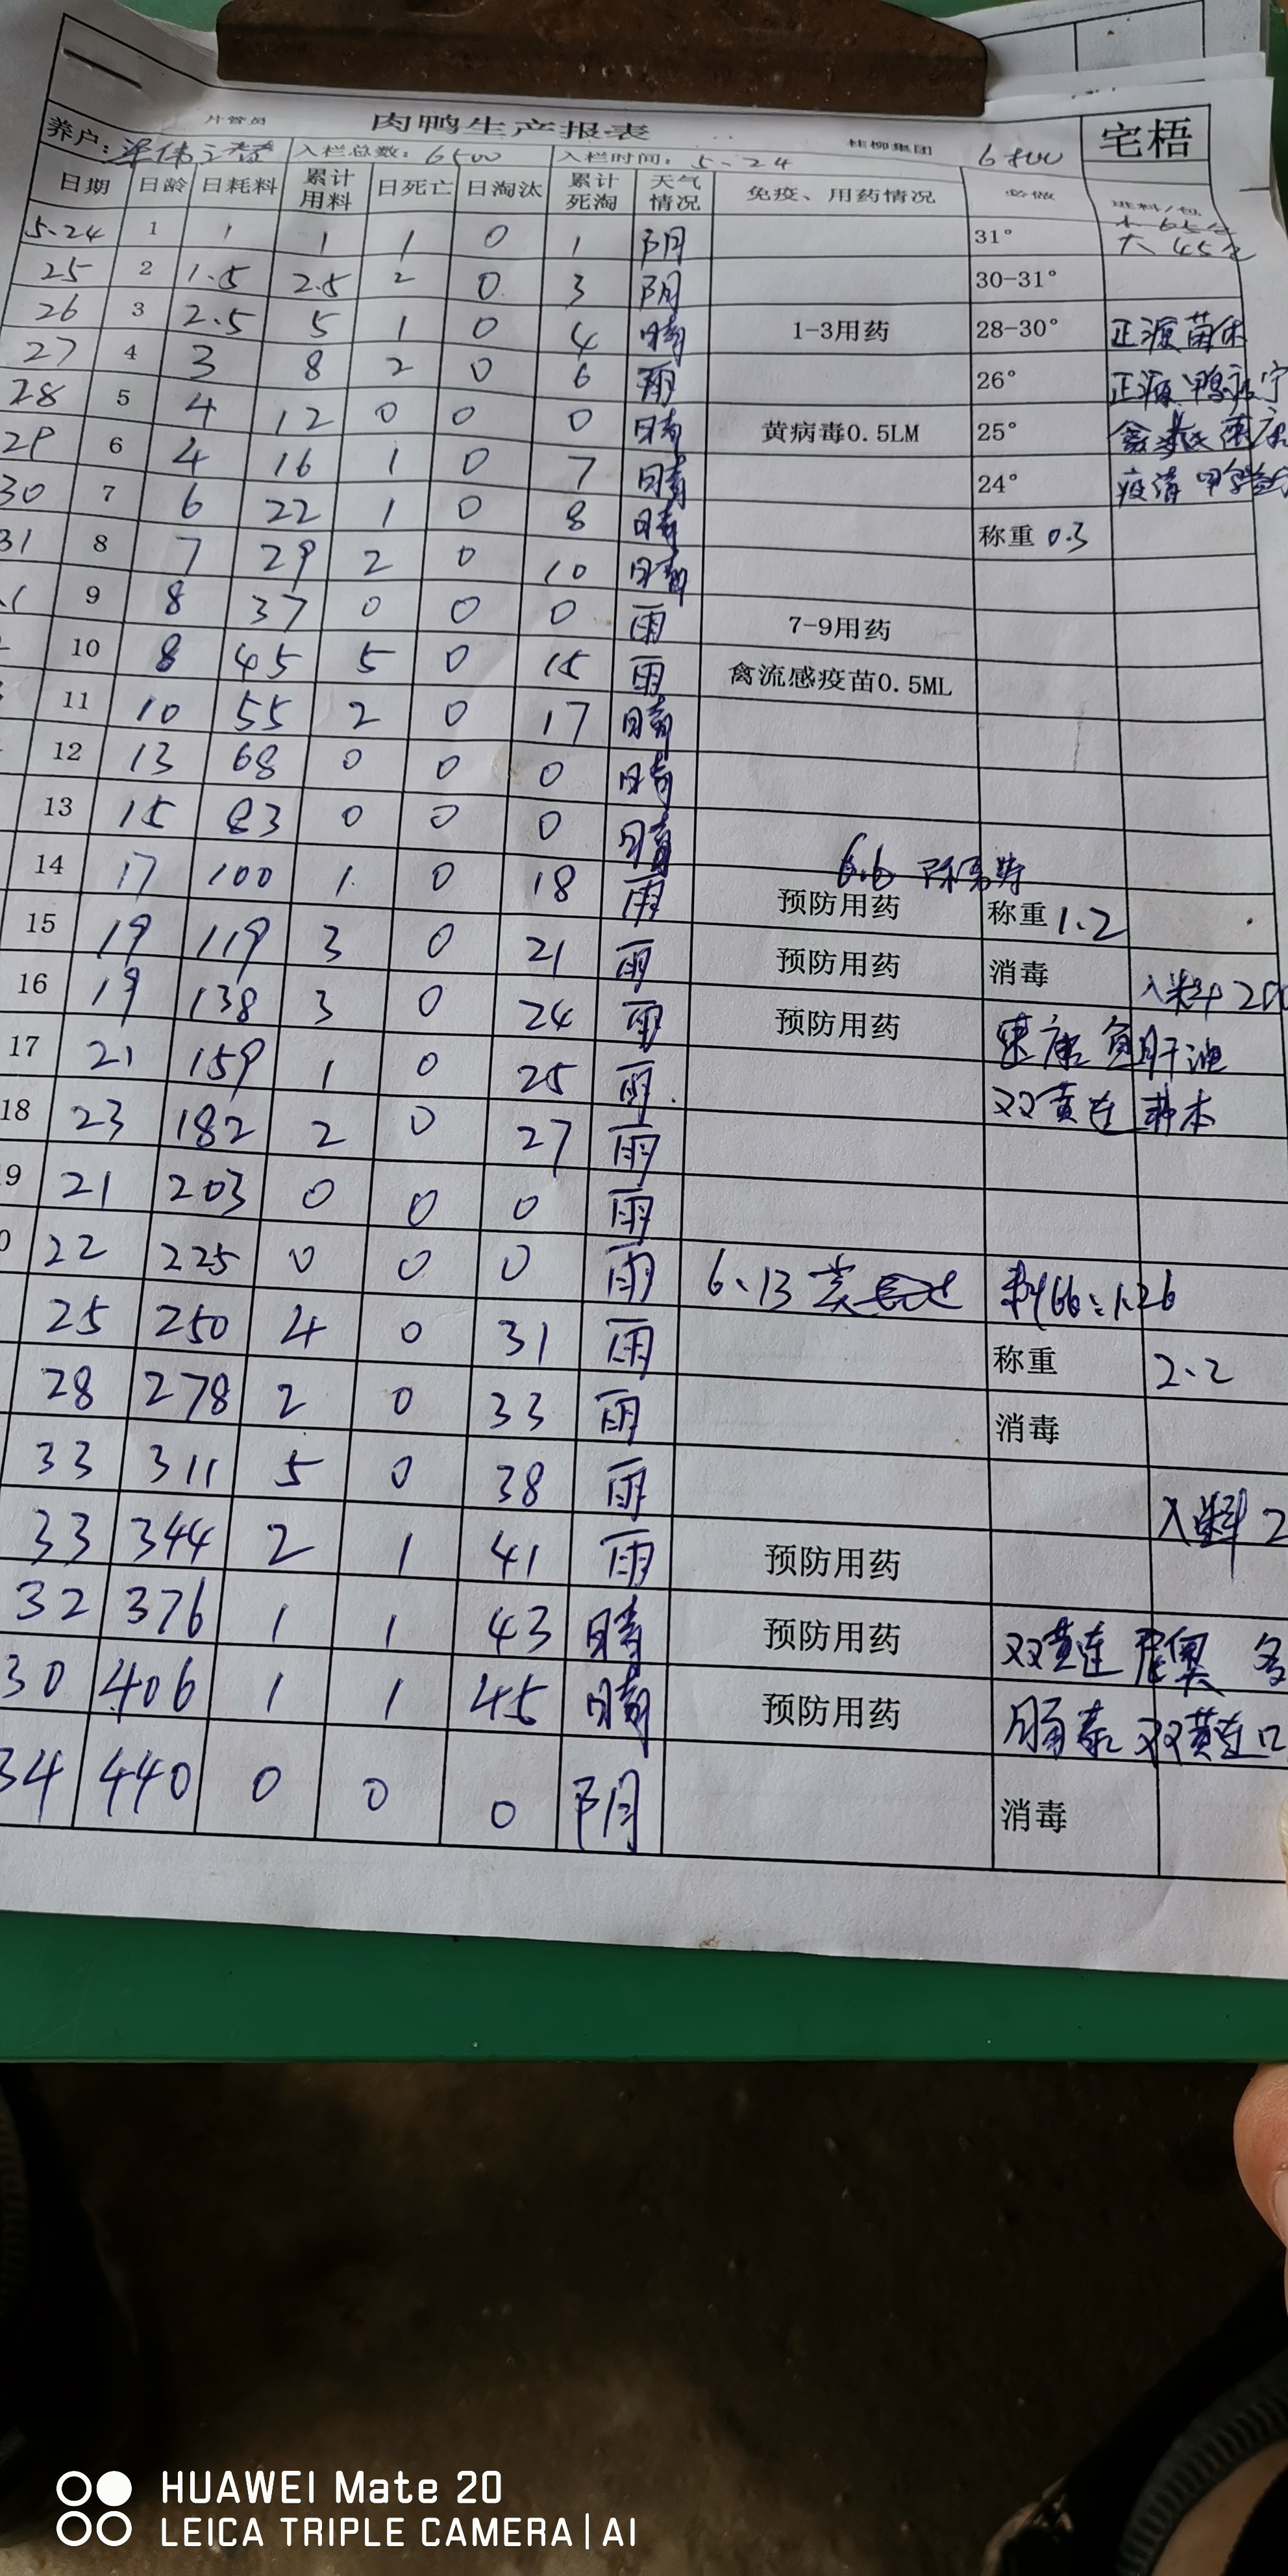 肉鸭生产报表
片管员 桂柳集团 6800 宅梧
养户: 入栏总数: 6500 入栏时间: 5-24
日期 日龄 日耗料 累计用料 日死亡 日淘汰 累计死淘 天气情况 免疫、用药情况 必做 进料/包
5-24 1 1 1 1 0 1 阴 31° 大 45包
25 2 1.5 2.5 2 0 3 阴 30-31°
26 3 2.5 5 1 0 4 晴 1-3用药 28-30° 正源
27 4 3 8 2 0 6 雨 26° 正源
28 5 4 12 0 0 0 晴 黄病毒0.5LM 25°
29 6 4 16 1 0 7 晴 24° 疫清
30 7 6 22 1 0 8 晴 称重 0.3
31 8 7 29 2 0 10 晴
9 8 37 0 0 0 雨 7-9用药
10 8 45 5 0 15 雨 禽流感疫苗0.5ML
11 10 55 2 0 17 晴
12 13 68 0 0 0 晴
13 15 83 0 0 0 晴
6.6
14 17 100 1 0 18 雨 预防用药 称重 1.2
15 19 119 3 0 21 雨 预防用药 消毒 入料
16 19 138 3 0 24 雨 预防用药 康 鱼肝油
17 21 159 1 0 25 雨 双黄连
18 23 182 2 0 27 雨
21 203 0 0 0 雨
22 225 0 0 0 雨 6.13 1.26
25 250 4 0 31 雨 称重 2.2
28 278 2 0 33 雨 消毒
33 311 5 0 38 雨 入料
33 344 2 1 41 雨 预防用药
32 376 1 1 43 晴 预防用药 双黄连
30 406 1 1 45 晴 预防用药 肠泰 双黄连口
34 440 0 0 0 阴 消毒
HUAWEI Mate 20
LEICA TRIPLE CAMERA | AI